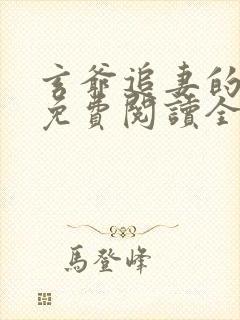 玄爺追妻的
免費閱讀全
馬登峰